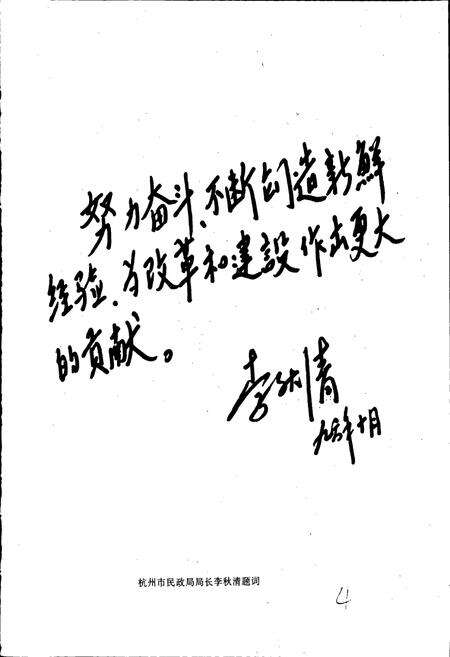 努力奋斗、不断创造新鲜
经验，为改革和建設作出更大
的贡献。
李秋清
九六年十月
杭州市民政局局长李秋清题词
4